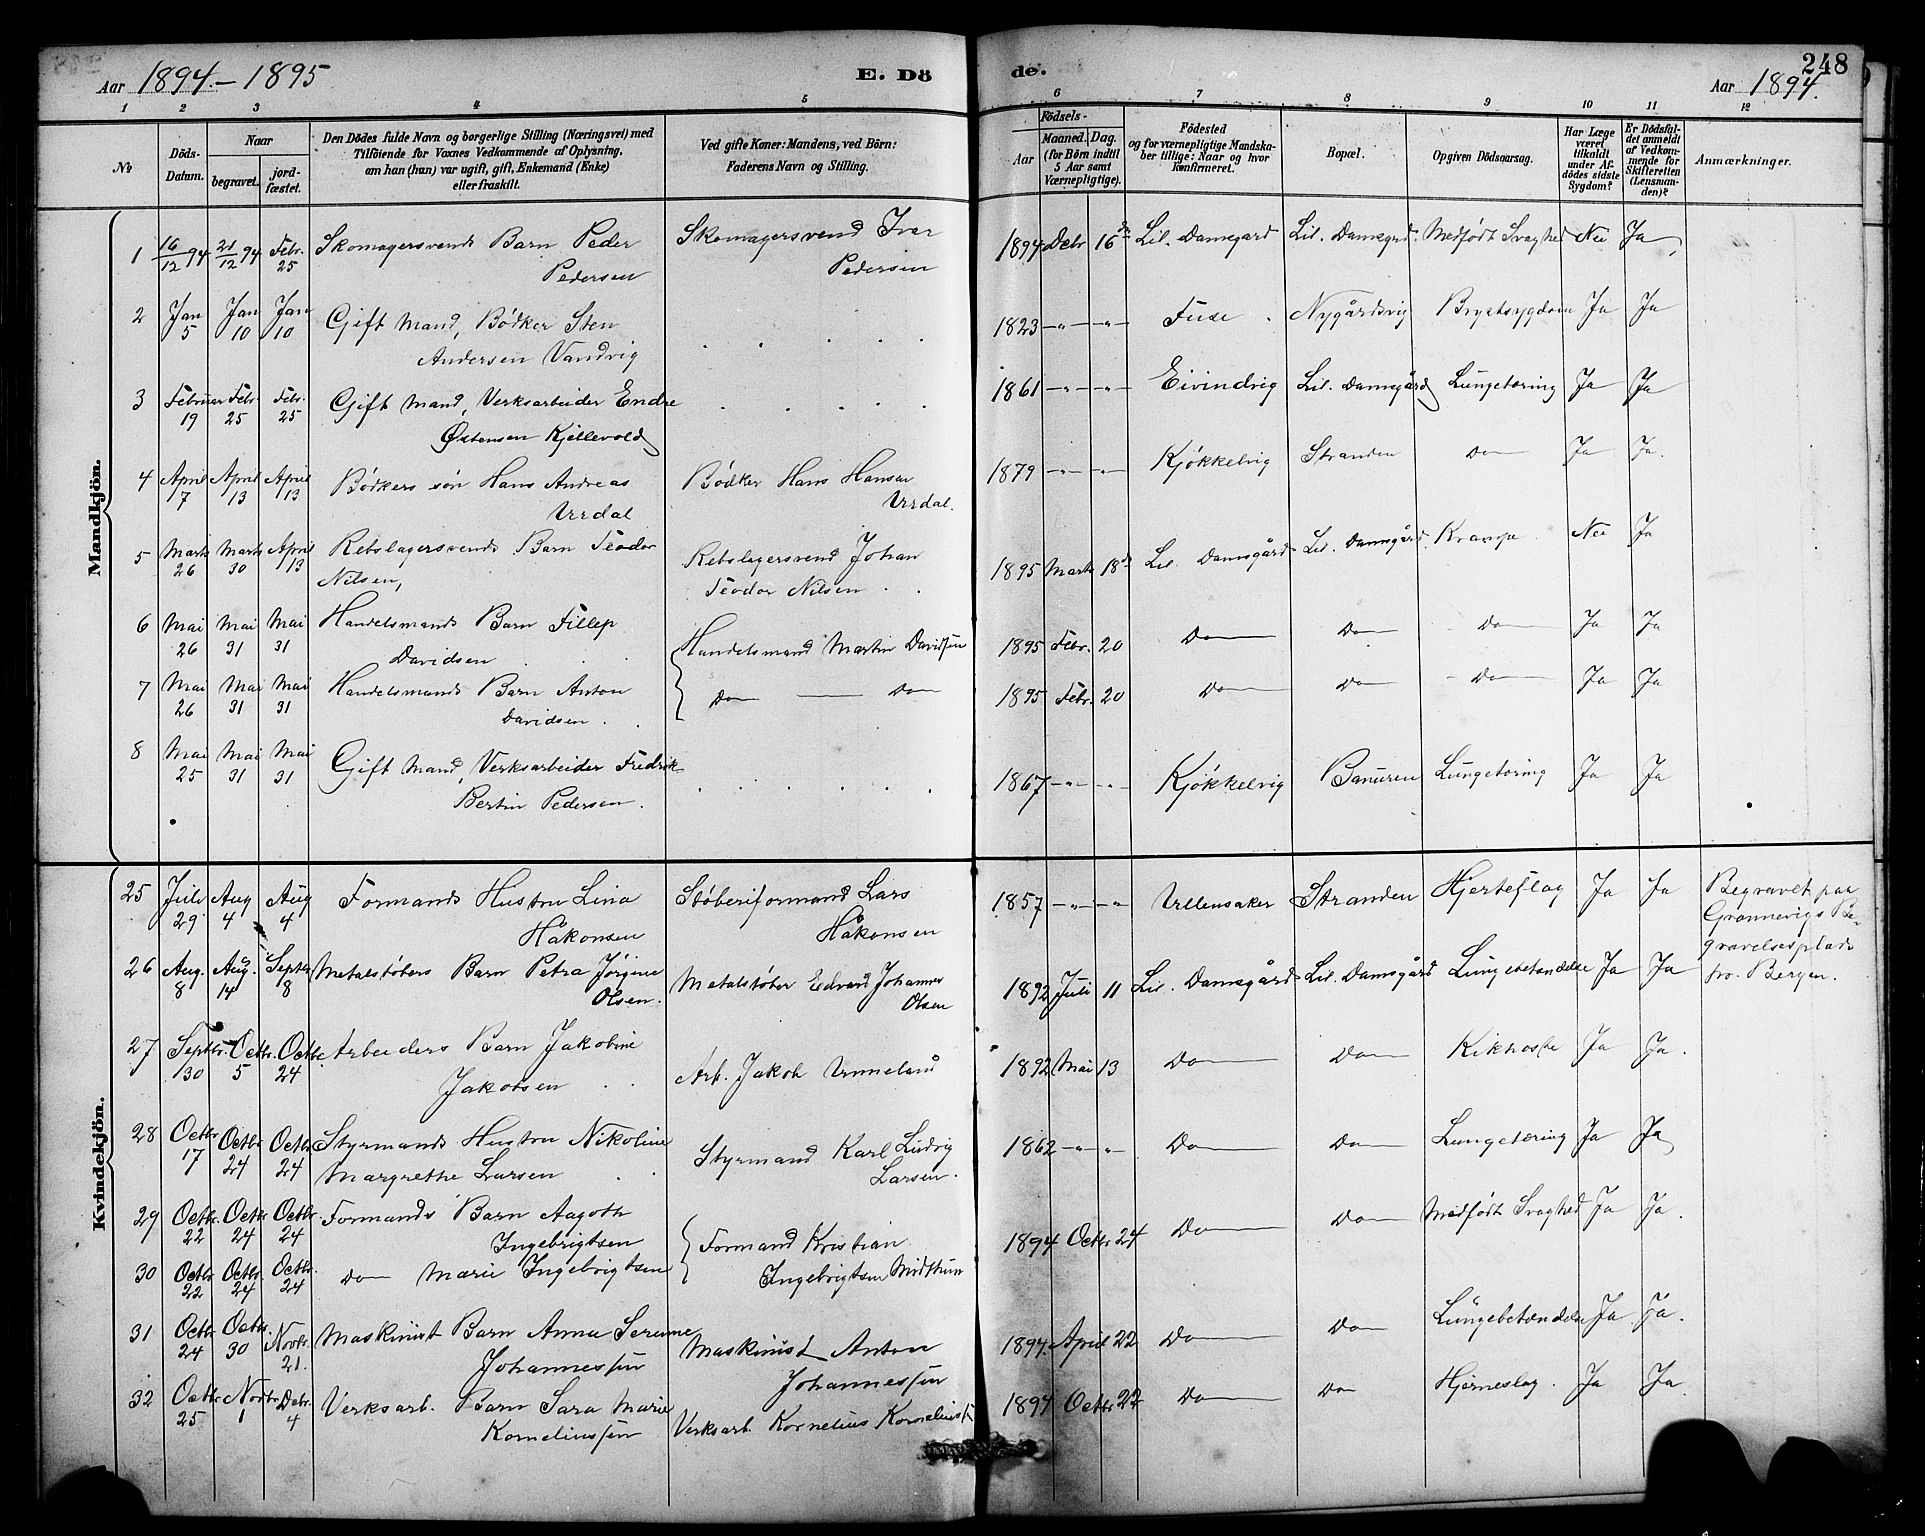 Aar 1894.-1895
E. Dö
de.
248
Aar 1894.
1 2 3 4 5 6 7 8 9 10 11 12
№
Döds-Datum.
Naar
begravet.
jordfæstet.
Den Dödes fulde Navn og borgerlige Stilling (Næringsvei) med
Tilföiende for Voxnes Vedkommende af Oplysning,
om han (hun) var ugift, gift, Enkemand (Enke)
eller fraskilt.
Ved gifte Koner: Mandens, ved Börn:
Faderens Navn og Stilling.
Födsels-
Aar
Maaned. Dag.
(for Börn indtil
5 Aar samt
Værnepligtige).
Födested
og for værnepligtige Mandska-
ber tillige: Naar og hvor
konfirmeret.
Bopæl.
Opgiven Dödsaarsag.
Har Læge
været
tilkaldt
under Af-
dödes sidste
Sygdom?
Er Dödsfal-
det anmeldt
af Vedkom-
mende for
Skifteretten
(Lensman-
den)?
Anmærkninger.
Mandkjön.
1 16/12 94 21/12 94 Febr. 25 Skomagersvends Barn Peder Skomagersvend Ivar 1894 Debr 16de Lil. Damsgård Lil. Damsgrd. Medfødt Svaghed Nei Ja
Pedersen Pedersen
2 Jan 5 Jan 10 Jan 10 Gift Mand, Bødker Sten 1823 -"- -"- Fuse. Nygårdsvig Brystsygdom Ja Ja
Andersen Vandvig
3 Februar 19 Febr. 25 Febr. 25 Gift Mand, Verksarbeider Endre 1861 -"- -"- Eivindvig Lil. Damsgård Lungetæring Ja Ja
Østensen Kjellevold
4 April 7 April 13 April 13 Bødkers søn Hans Andreas Bødker Hans Hansen 1879 -"- -"- Kjøkkelvig Stranden Do Ja Ja.
Urdal Urdal.
5 Marts 26 Marts 30 April 13 Rebslagersvends Barn Teodor Rebslagersvend Johan 1895 Marts 18de Lil. Damsgård Lil. Damsgård. Krampe Nei Ja
Nilsen, Teodor Nilsen
6 Mai 26 Mai 31 Mai 31 Handelsmands Barn Fillep Handelsmand Martin Davidsen 1895 Febr. 20 Do Do Do Ja Ja
Davidsen
7 Mai 26 Mai 31 Mai 31 Handelsmands Barn Anton Do Do 1895 Febr. 20 Do Do Do Ja Ja
Davidsen.
8 Mai 25 Mai 31 Mai 31 Gift Mand, Verksarbeider Fredrik 1867 -"- -"- Kjøkkelvig Banuren Lungetæring Ja Ja
Bertin Pedersen.
Kvindekjön.
25 Juli 29 Aug 4 Aug 4 Formands Hustru Lina Støberiformand Lars 1857 -"- -"- Ullensaker Stranden Hjerteslag Ja Ja Begravet paa
Håkonsen Håkonsen Grønnevigs Be-
gravelsesplads
pr. Bergen.
26 Aug. 8 Aug. 14 Septbr 8 Metalstøbers Barn Petra Jørgine Metalstøber Edvard Johannes 1892 Juli 11 Lil. Damsgård Lil. Damsgård Lungebetændelse Ja Ja
Olsen. Olsen
27 Septbr. 30 Octbr. 5 Octbr. 24 Arbeiders Barn Jakobine Arb. Jakob 1892 Mai 13 Do Do Kikhoste Ja Ja.
Jakobsen
28 Octbr 17 Octbr 24 Octbr 24 Styrmands Hustru Nikoline Styrmand Karl Ludvig 1862 -"- -"- Do Do Lungetæring Ja Ja
Margrethe Larsen Larsen.
29 Octbr. 22 Octbr. 24 Octbr. 24 Formands Barn Aagoth Formand Kristian 1894 Octbr 24 Do Do Medfødt Svaghed Ja Ja.
Ingebrigtsen
30 Octbr 22 Octbr. 24 Octbr. 24 Do Marie Ingebrigtsen Ingebrigtsen
31 Octbr 24 Octbr. 30 Novbr. 21. Maskinist Barn Anna Maskinist Anton 1894. April 22 Do Do Lungebetændelse Ja Ja.
Johannessen Johannessen
32 Octbr 25 Novbr. 1 Debr. 4 Verksarb. Barn Sara Marie Verksarb. Kornelius Korneliussen 1894 Octbr 22 Do Do Hjerneslag. Ja Ja.
Korneliussen